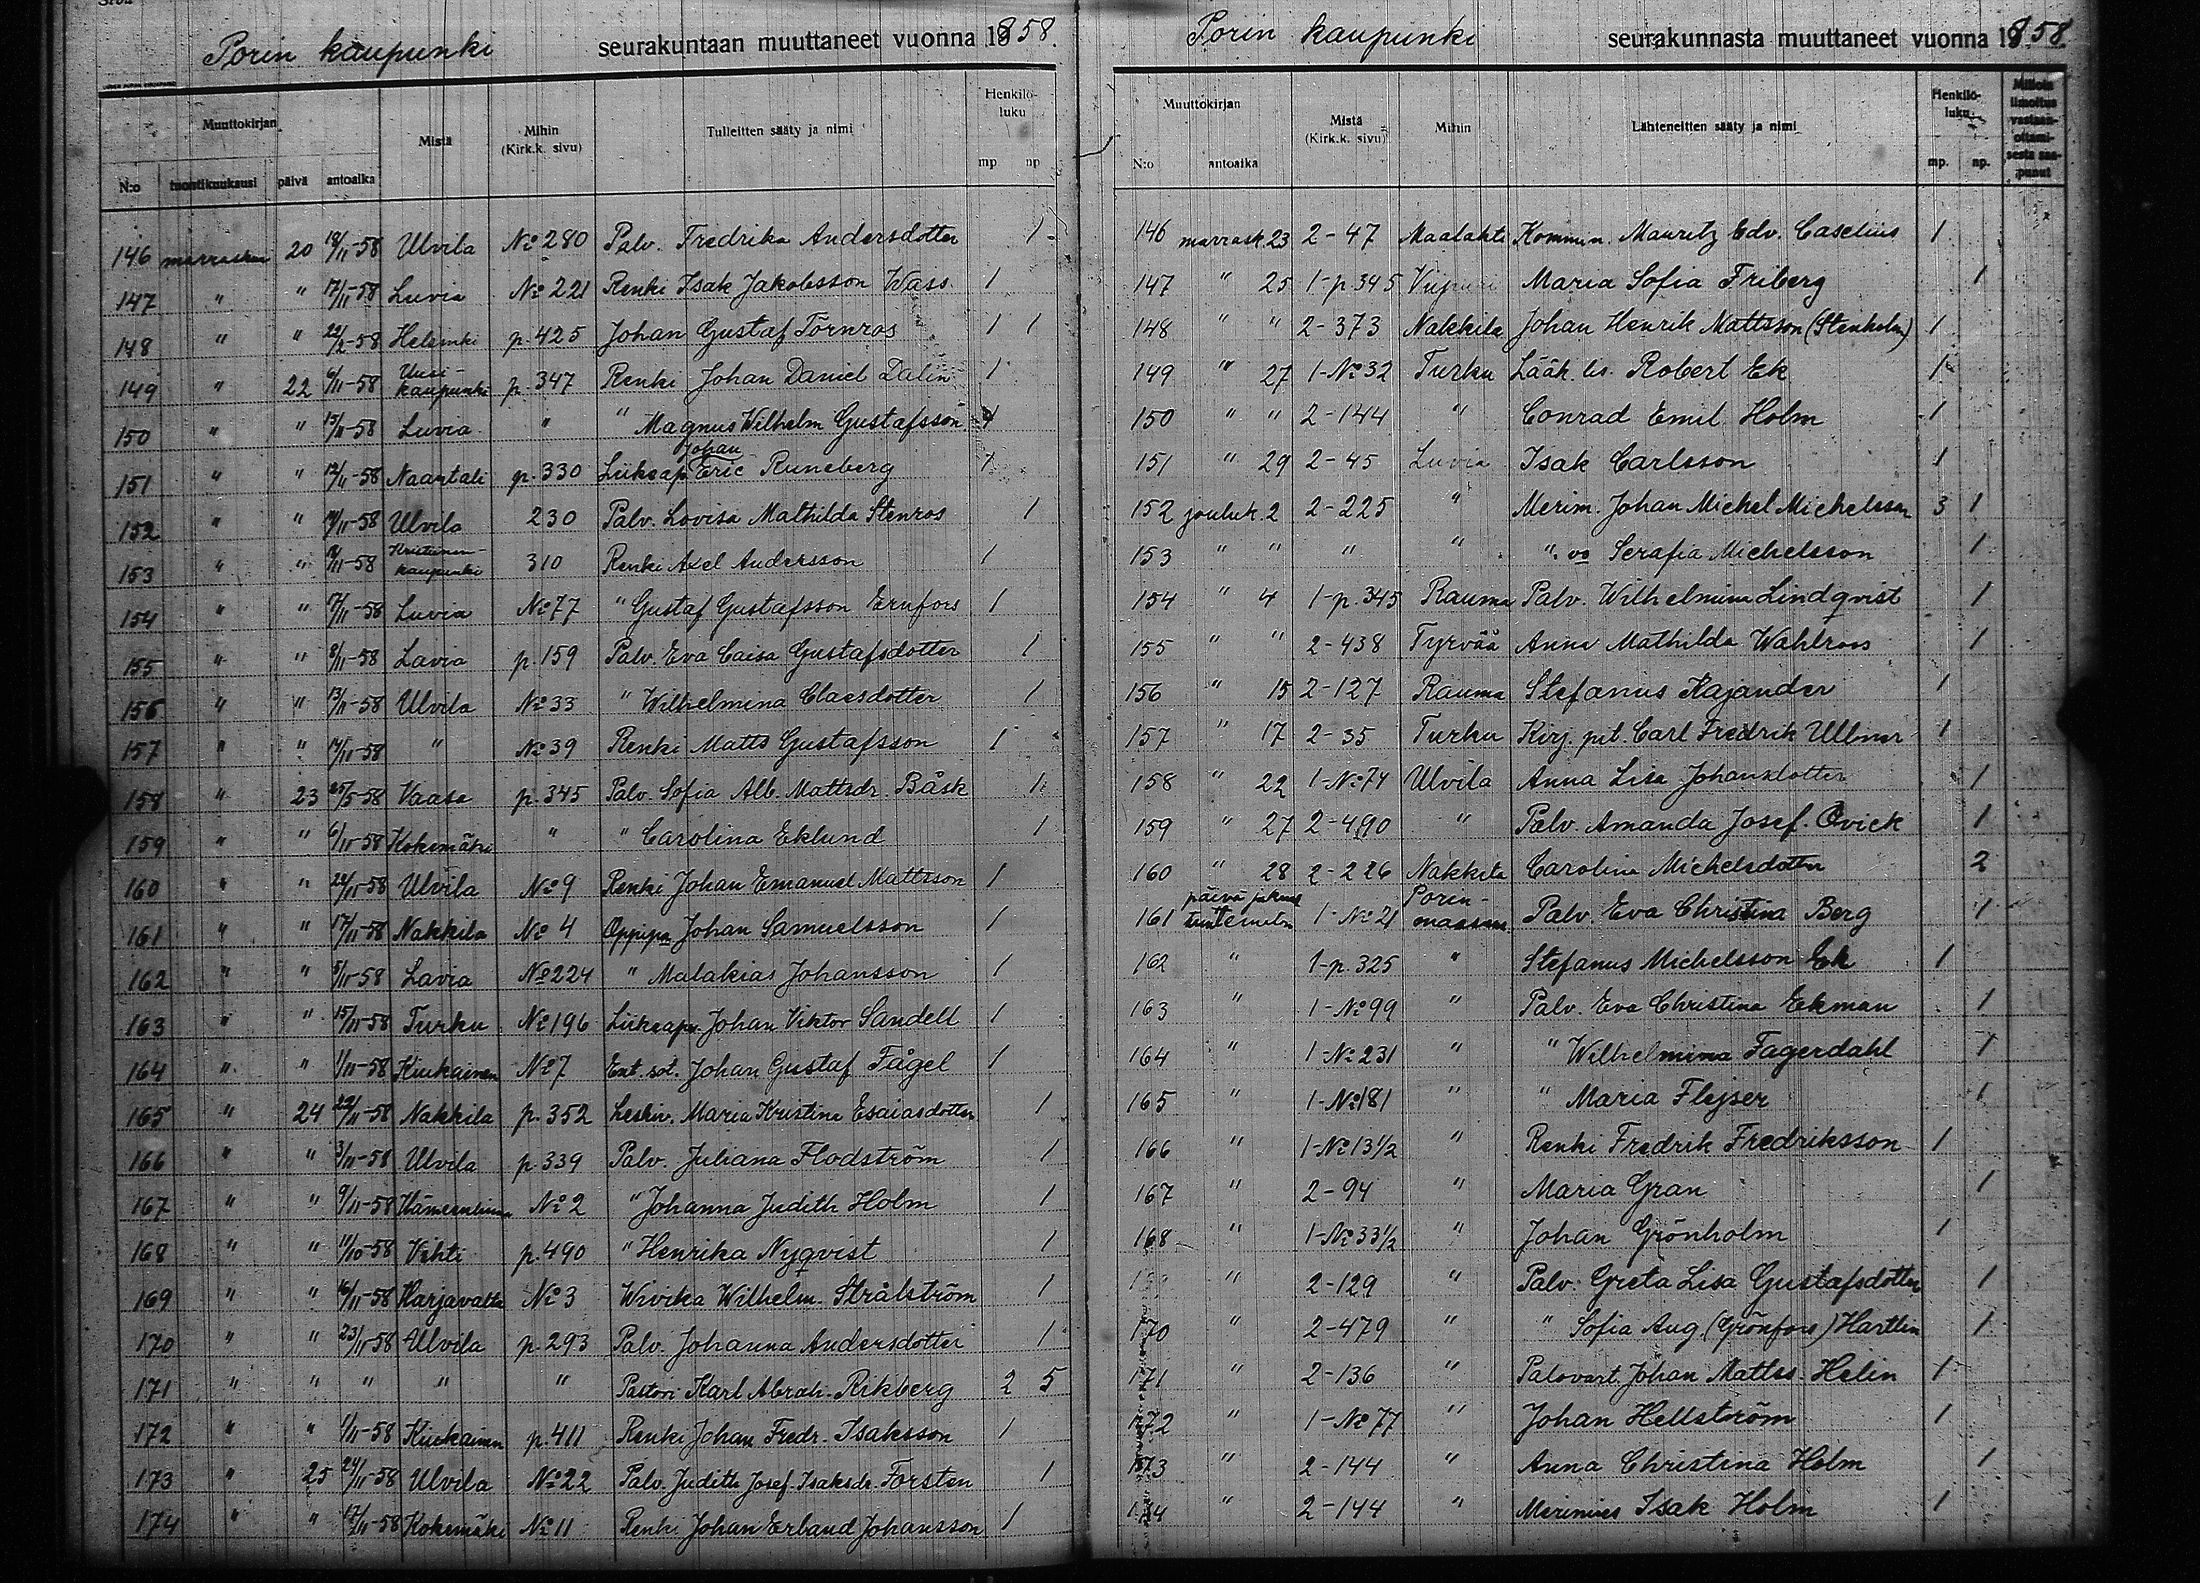 Porin kaupunki seurakuntaan muuttaneet vuonna 1858.
Muuttokirjan Mistä Mihin (Kirk.k. sivu) Tulleitten sääty ja nimi Henkilö-luku
N:o tuontikuukausi päivä antoaika mp np
146 marraskuu 20 18/11-58 Ulvila No 280 Palv. Fredrika Andersdotter 1
147 " " 17/11-58 Luvia No 221 Renki Isak Jakobsson Wass 1
148 " " 22/2-58 Helsinki p. 425 Johan Gustaf Törnros 1 1
149 " 22 6/11-58 Uusi-kaupunki p. 347 Renki Johan Daniel Dalin 1
150 " " 15/11-58 Luvia " " Magnus Wilhelm Gustafsson
151 " " 12/11-58 Naantali p. 330 Liikeap. Johan Eric Runeberg 1
152 " " Ulvila 230 Palv. Lovisa Mathilda Stenros 1
153 " " Kristiinan-kaupunki 310 Renki Axel Andersson 1
154 " " 17/11-58 Luvia No 77 " Gustaf Gustafsson Ernfors 1
155 " " 8/11-58 Lavia p. 159 Palv. Eva Caisa Gustafsdotter 1
156 " " 13/11-58 Ulvila No 33 " Wilhelmina Claesdotter 1
157 " " 14/11-58 " No 39 Renki Matts Gustafsson 1
158 " 23 25/5-58 Vaasa p. 345 Palv. Sofia Alb. Mattsdr. Båsk 1
159 " " 6/11-58 Kokemäki " " Carolina Eklund 1
160 " " 20/11-58 Ulvila No 9 Renki Johan Emanuel Mattsson 1
161 " " 17/11-58 Nakkila No 4 Oppipa Johan Samuelsson 1
162 " " 5/11-58 Lavia No 224 " Malakias Johansson 1
163 " " 15/11-58 Turku No 196 Liikeap. Johan Viktor Sandell 1
164 " " 1/11-58 Kiukainen No 7 Ent. sot. Johan Gustaf Fågel 1
165 " 24 22/11-58 Nakkila p. 352 Leskiv. Maria Kristina Esaiasdotter 1
166 " " 3/11-58 Ulvila p. 339 Palv. Juliana Flodström 1
167 " " 9/11-58 Hämeenlinna No 2 " Johanna Judith Holm 1
168 " " 11/10-58 Vihti p. 490 " Henrika Nyqvist 1
169 " " 16/11-58 Harjavalta No 3 Wivika Wilhelm. Strålström 1
170 " " 23/11-58 Ulvila p. 293 Palv. Johanna Andersdotter 1
171 " " " " " Pastori Karl Abrah. Rikberg 2 5
172 " " 1/11-58 Kiukainen p. 411 Renki Johan Fredr. Isaksson 1
173 " 25 24/11-58 Ulvila No 22 Palv. Judith Josef. Isaksdr. Forsten 1
174 " " 17/11-58 Kokemäki No 11 Renki Johan Erland Johansson 1
Porin kaupunki seurakunnasta muuttaneet vuonna 1858.
Muuttokirjan Mistä (Kirk.k. sivu) Mihin Lähteneitten sääty ja nimi Henkilö-luku Milloin ilmoitus vastaan-ottami-sesta saa-punut
N:o antoaika mp. np.
146 marrask. 23 2-47 Maalahti Kommin. Mauritz Edv. Caselius 1
147 " 25 1-p. 345 Viipuri Maria Sofia Friberg 1
148 " " 2-373 Nakkila Johan Henrik Mattsson (Stenholm) 1
149 " 27 1-No 32 Turku Lääk. lis. Robert Ek 1
150 " " 2-144 " Conrad Emil Holm 1
151 " 29 2-45 Luvia Isak Carlsson 1
152 jouluk. 2 2-225 " Merim. Johan Michel Michelsson 3 1
153 " " " " " vo Serafia Michelsson 1
154 " 4 1-p. 345 Rauma Palv. Wilhelmina Lindqvist 1
155 " " 2-438 Tyrvää Anna Mathilda Wahlroos 1
156 " 15 2-127 Rauma Stefanus Kajander 1
157 " 17 2-35 Turku Kirj. pit. Carl Fredrik Ullner 1
158 " 22 1-No 74 Ulvila Anna Lisa Johansdotter 1
159 " 27 2-490 " Palv. Amanda Josef. Qvick 1
160 " 28 2-226 Nakkila Carolina Michelsdotter 2
161 päivä ja kuuk. tuntematon 1-No 21 Porin-maaseur. Palv. Eva Christina Berg 1
162 " 1-p. 325 " Stefanus Michelsson Ek 1
163 " 1-No 99 " Palv. Eva Christina Ekman 1
164 " 1-No 231 " " Wilhelmina Fagerdahl 1
165 " 1-No 181 " " Maria Flejser 1
166 " 1-No 13 1/2 " Renki Fredrik Fredriksson 1
167 " 2-94 " Maria Gran 1
168 " 1-No 33 1/2 " Johan Grönholm 1
169 " 2-129 " Palv. Greta Lisa Gustafsdotter 1
170 " 2-479 " " Sofia Aug. (Grönfors) Hartlin 1
171 " 2-136 " Palovart. Johan Mattss. Helin 1
172 " 1-No 77 " Johan Hellström 1
173 " 2-144 " Anna Christina Holm 1
174 " 2-144 " Merimies Isak Holm 1